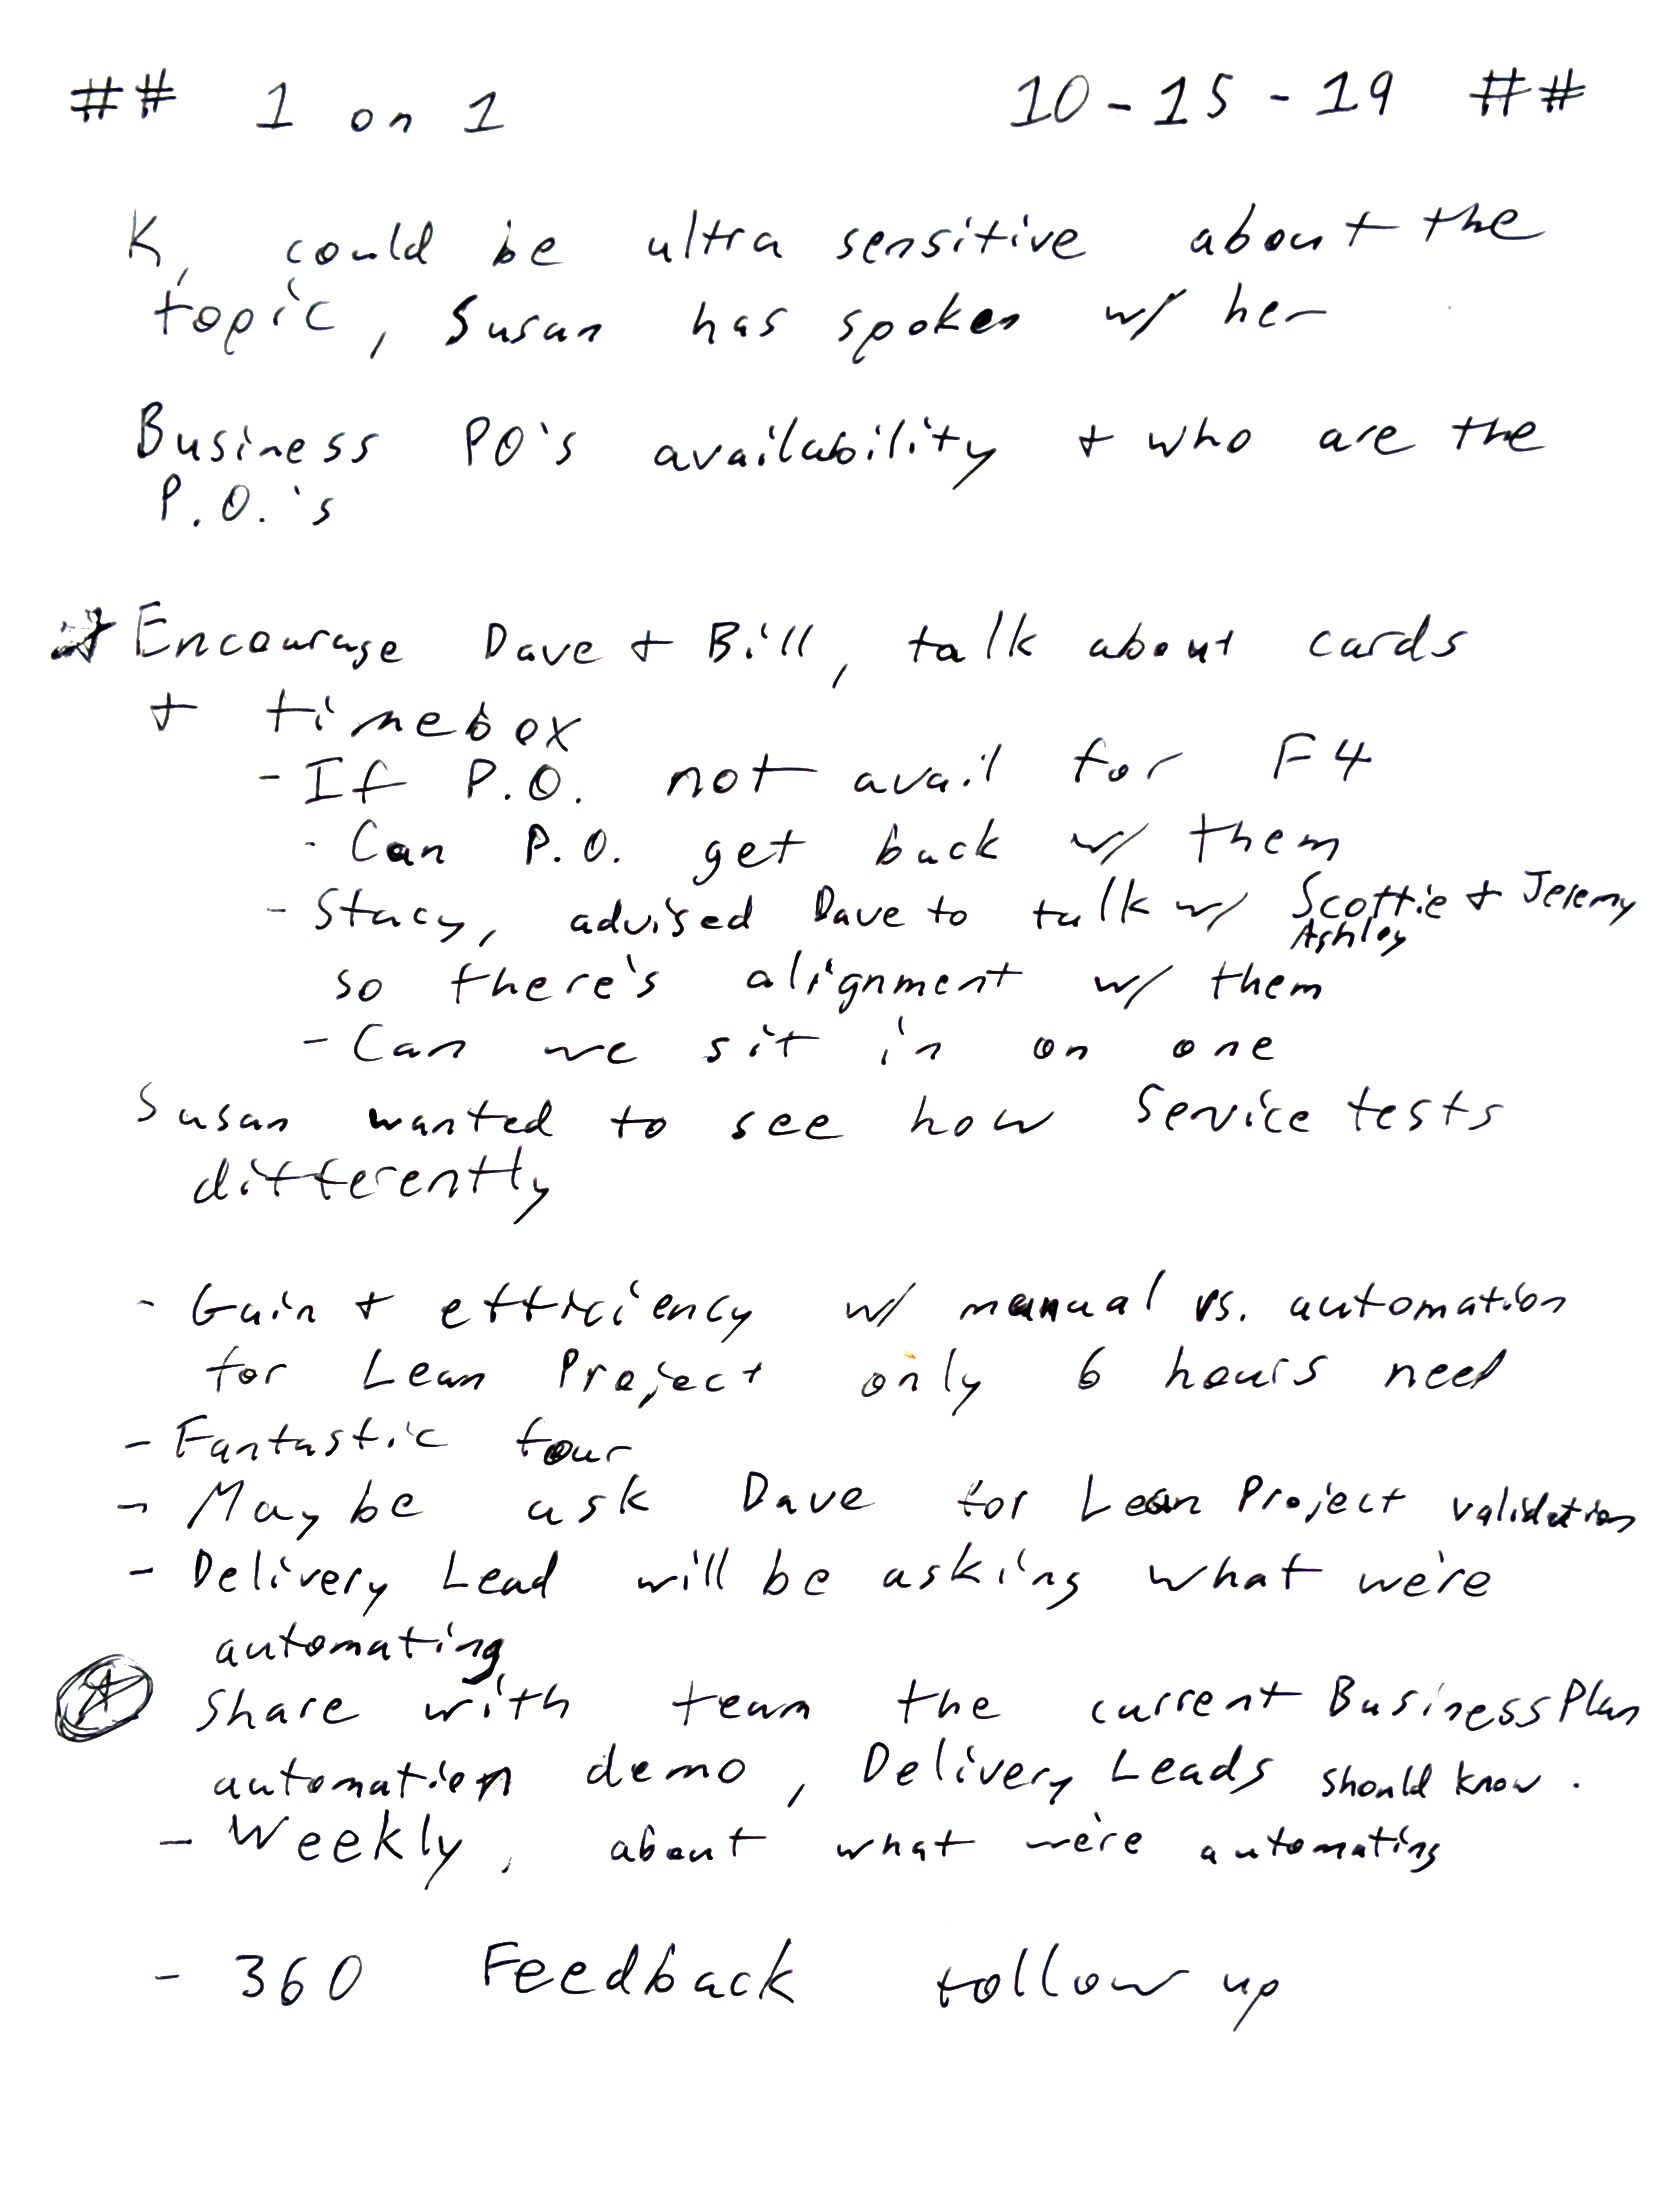 ## 1 on 1 10-15-19 ##
K, could be ultra sensitive about the
topic, Susan has spoken w/ her
Business PO's availability + who are the
P.O.'s
* Encourage Dave + Bill, talk about cards
+ timebox
- If P.O. not avail for F4
- Can P.O. get back w/ them
- Stacy, advised Dave to talk w/ Scottie + Jeremy
Ashley
so there's alignment w/ them
- Can we sit in on one
Susan wanted to see how Service tests
differently
- Gain + efficiency w/ manual vs. automation
for Lean Project only 6 hours need
- Fantastic tour
- Maybe ask Dave for Lean Project validation
- Delivery Lead will be asking what we're
automating
* Share with team the current Business Plan
automation demo, Delivery Leads should know.
- Weekly, about what we're automating
- 360 Feedback follow up